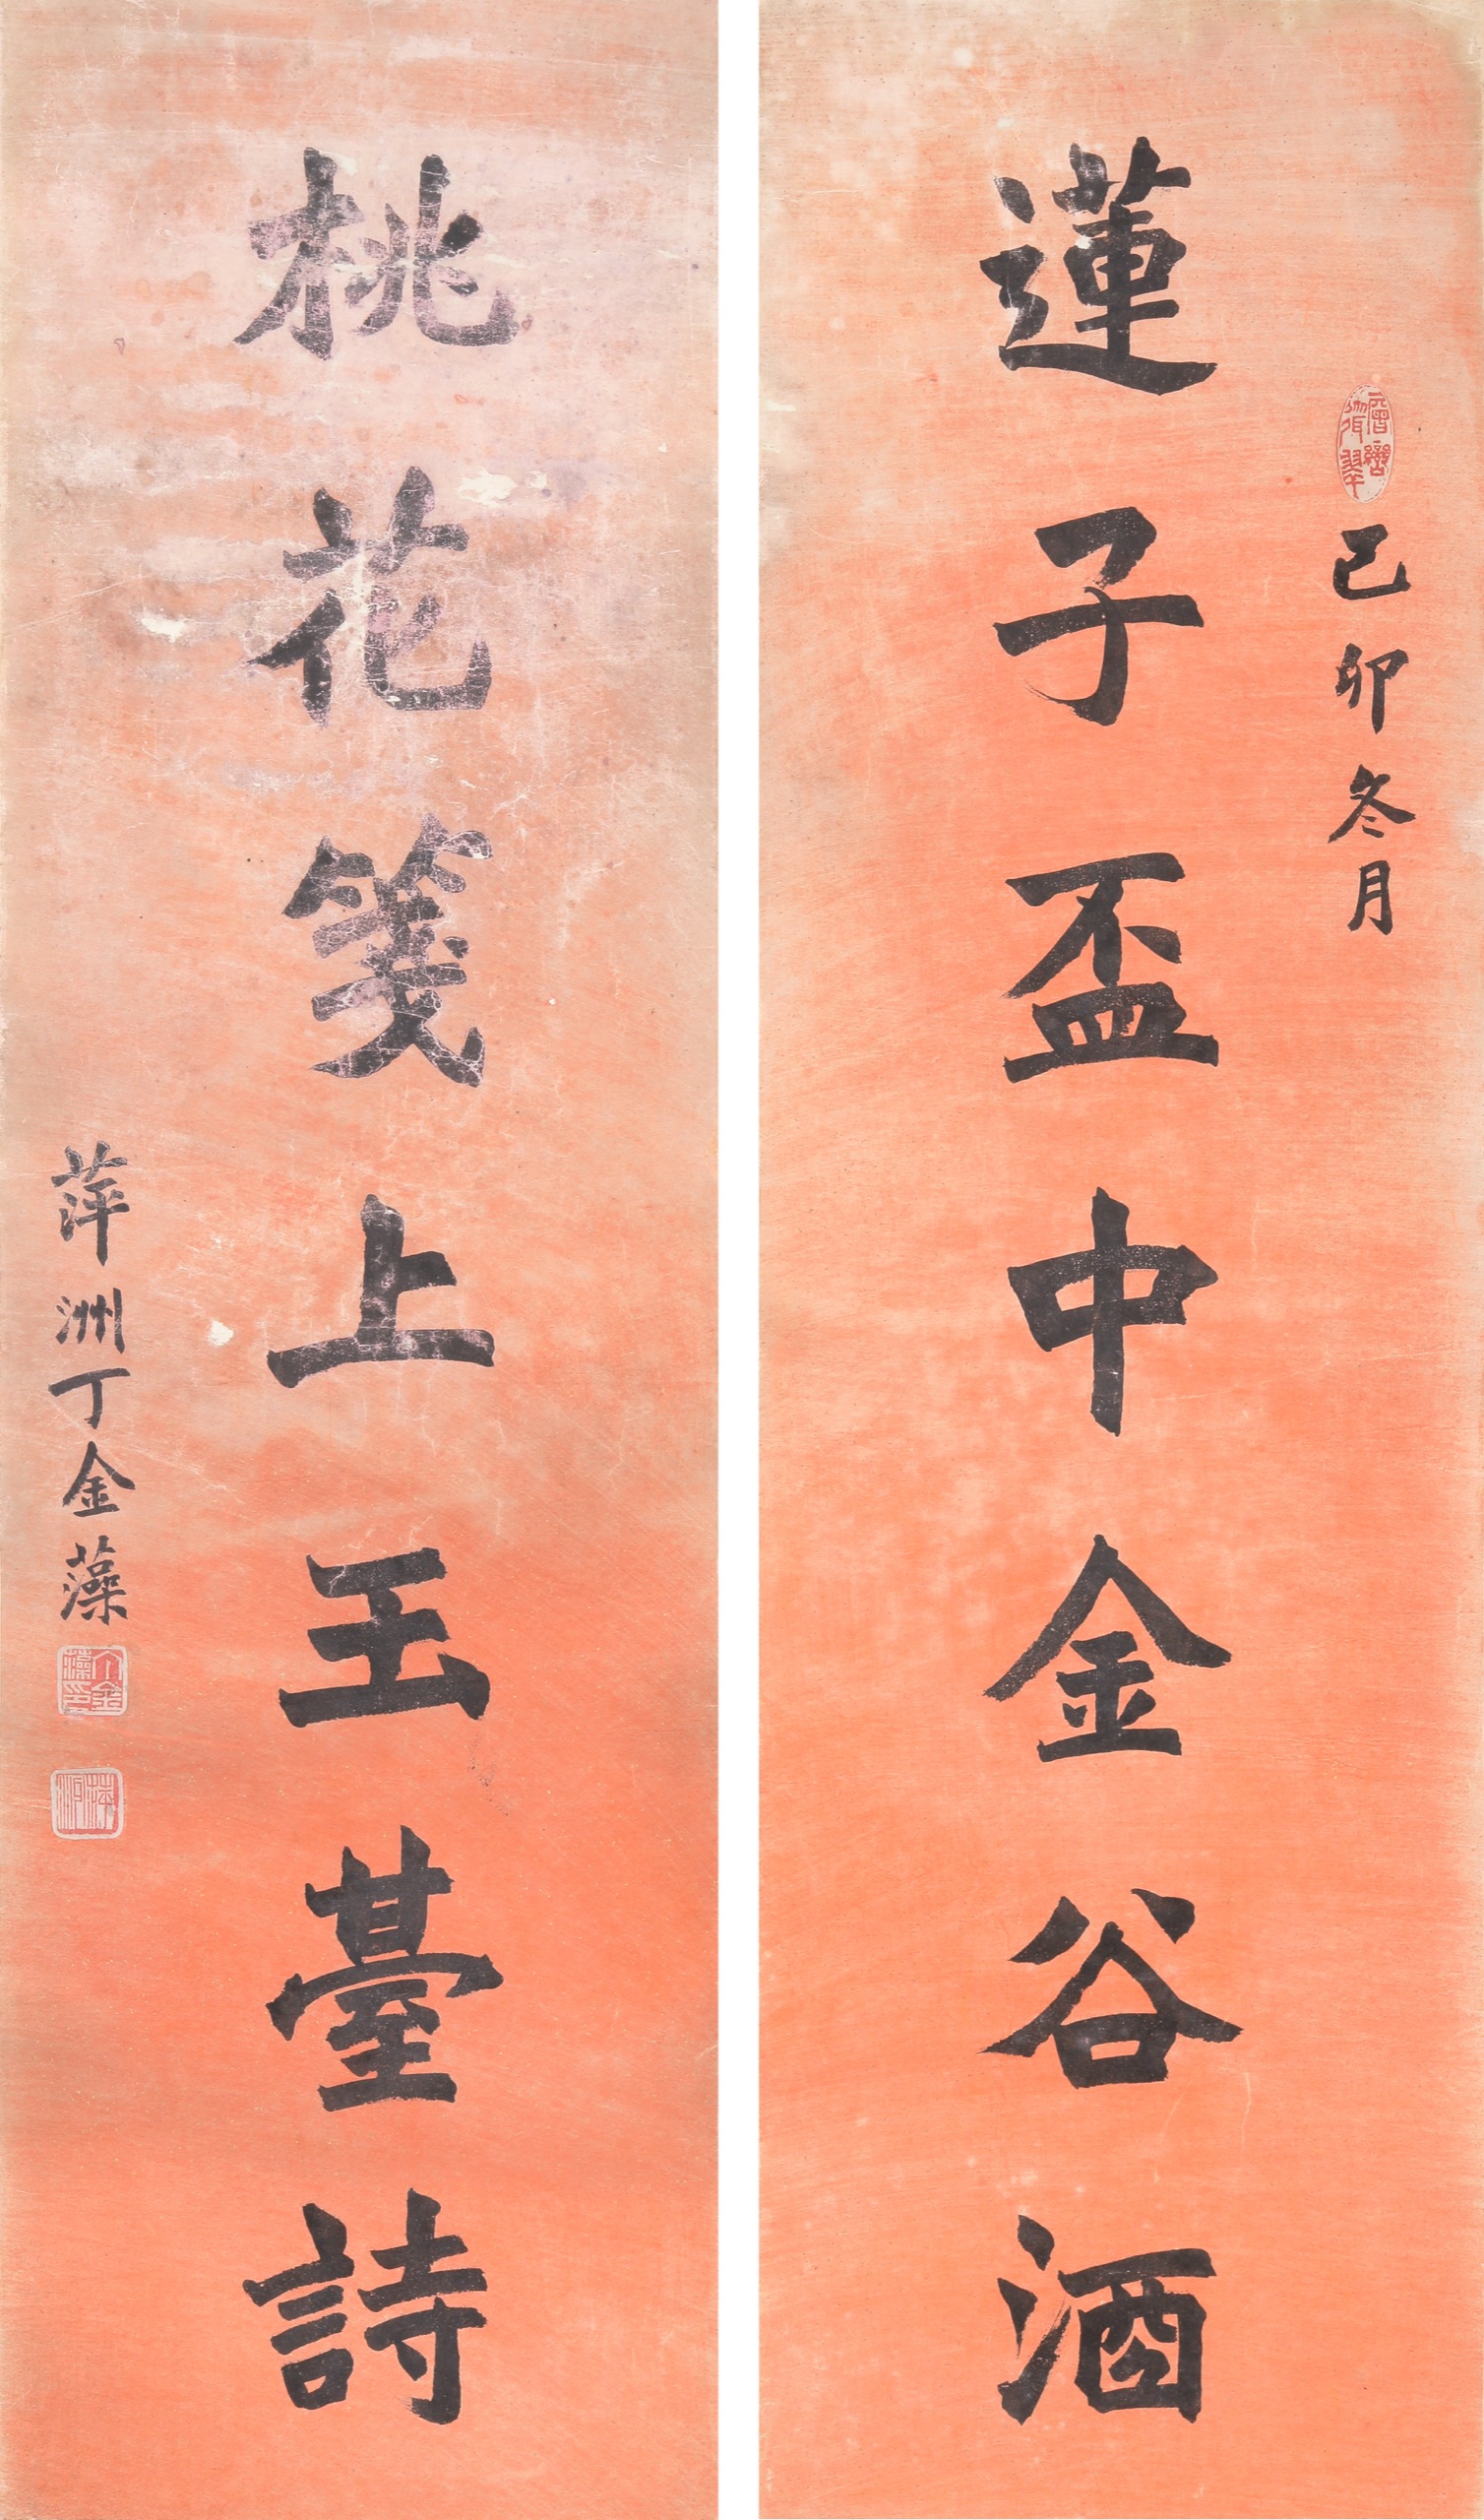 己卯冬月
蓮子盃中金谷酒
桃花箋上玉臺詩
萍洲丁金藻